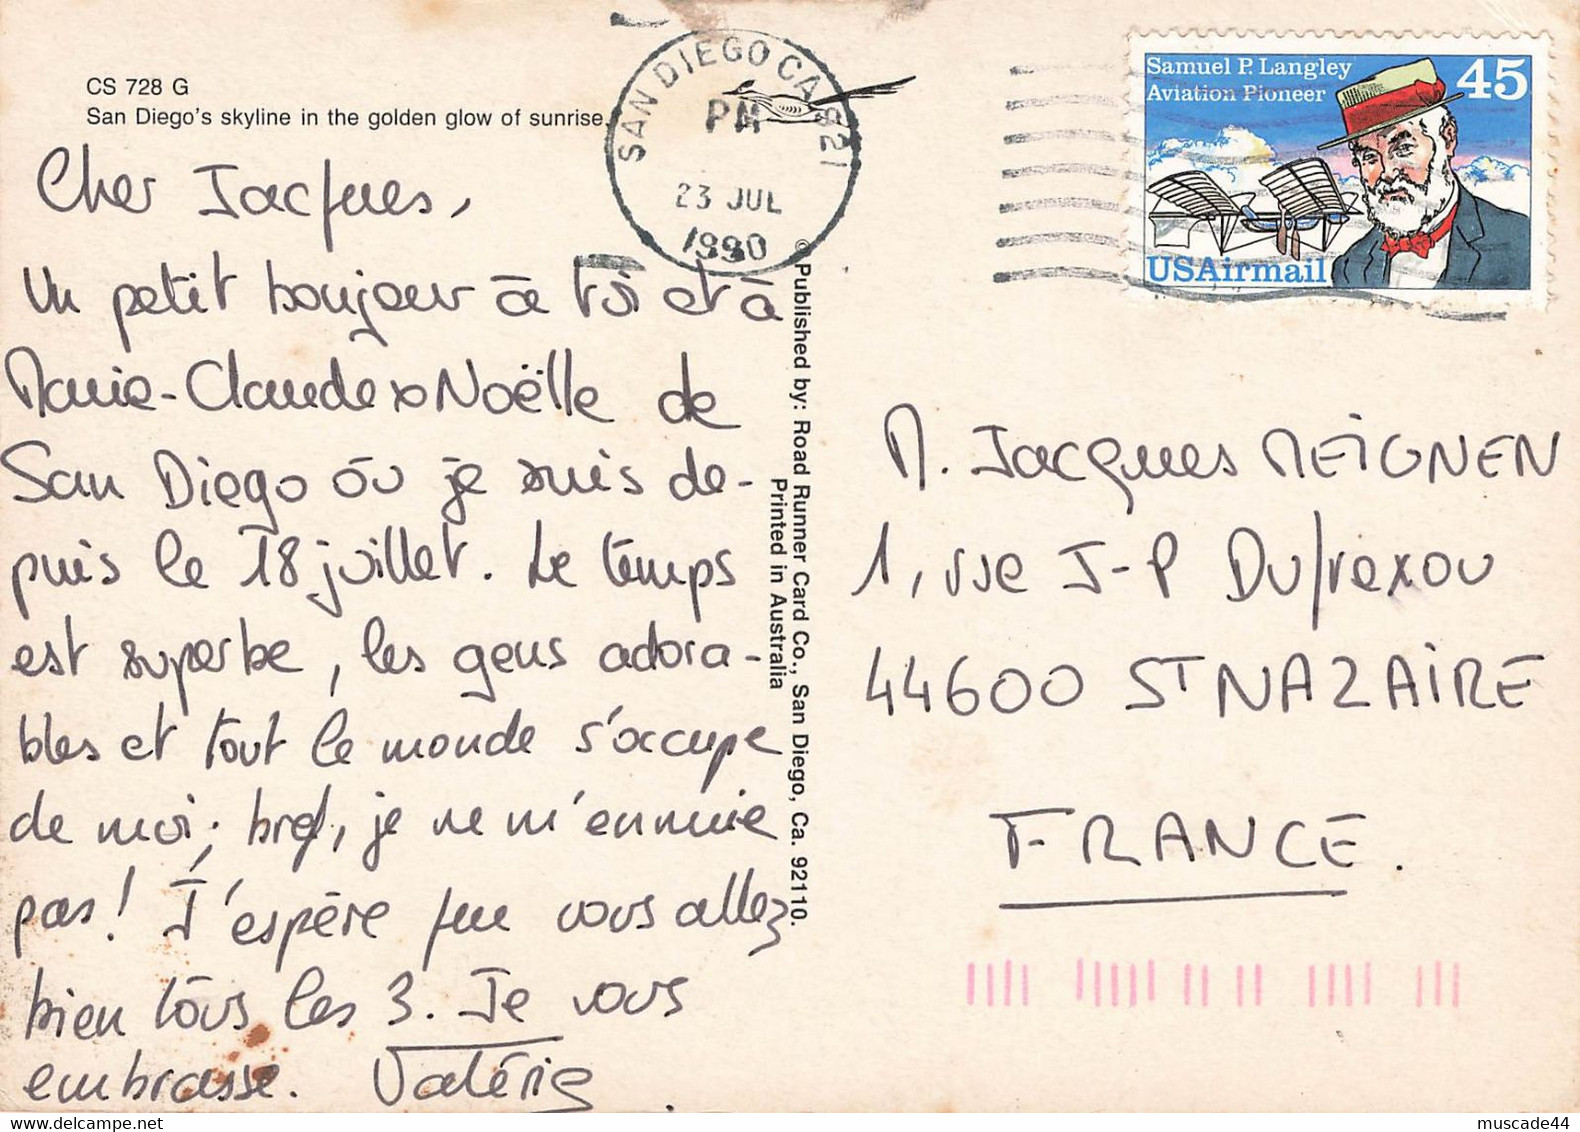 CS 728 G
San Diego's skyline in the golden glow of sunrise.
Cher Jacques,
Un petit bonjour à toi et à
Marie-Claude x Noëlle de
San Diego où je suis de-
puis le 18 juillet. Le temps
est superbe, les gens adora-
bles et tout le monde s'occupe
de moi; bref, je ne m'ennuie
pas! J'espère que vous allez
bien tous les 3. Je vous
embrasse. Valérie.
© Published by: Road Runner Card Co., San Diego, Ca. 92110.
Printed in Australia
SAN DIEGO CA 921
PM
23 JUL
1990
Samuel P. Langley
Aviation Pioneer
45
USAirmail
M. Jacques MEIGNEN
1, rue J-P Dufrexou
44600 ST NAZAIRE
FRANCE.
muscade44